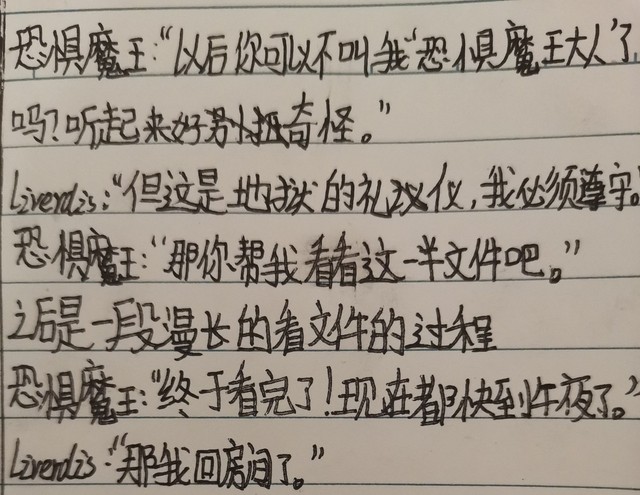 恐惧魔王：“以后你可以不叫我‘恐惧魔王大人’了
吗？听起来好别扭奇怪。”
Liverdis：“但这是地狱的礼仪，我必须遵守。
恐惧魔王：“那你帮我看看这一半文件吧。”
之后是一段漫长的看文件的过程
恐惧魔王：“终于看完了！现在都快到午夜了。”
Liverdis：“那我回房间了。”